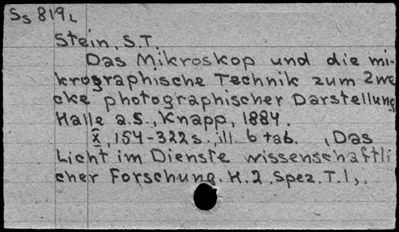 Ss 819L
Stein, S.T.
Das Mikroskop und die mi-
krographische Technik zum Zwe
cke photographischer Darstellung
Halle a.S., Knapp, 1884.
X, 154-322 s., ill. 6 tab. , Das
Licht im Dienste wissenschaftli
cher Forschung. H.2. Spez. T.1,.